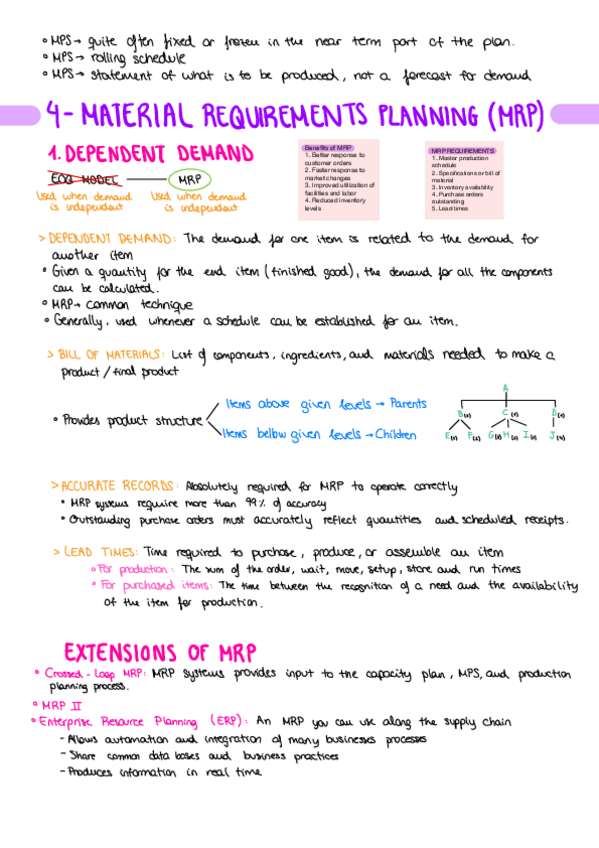 ° MPS → quite often fixed or frozen in the near term part of the plan.
° MPS → rolling schedule
° MPS → statement of what is to be produced, not a forecast for demand
4- MATERIAL REQUIREMENTS PLANNING (MRP)
1. DEPENDENT DEMAND
EOQ MODEL — MRP
Used when demand is independent
Used when demand is independent
Benefits of MRP
1. Better response to
customer orders
2. Faster response to
market changes
3. Improved utilization of
facilities and labor
4. Reduced inventory
levels
MRP REQUIREMENTS
1. Master production
schedule
2. Specifications or bill of
material
3. Inventory availability
4. Purchase orders
outstanding
5. Lead times
> DEPENDENT DEMAND: The demand for one item is related to the demand for
another item
° Given a quantity for the end item (finished good), the demand for all the components
can be calculated.
° MRP → common technique
° Generally, used whenever a schedule can be established for an item.
> BILL OF MATERIALS: List of components, ingredients, and materials needed to make a
product / final product
° Provides product structure
Items above given levels → Parents
Items bellow given levels → Children
A
B C D
E F G H I J
> ACCURATE RECORDS: Absolutely required for MRP to operate correctly
° MRP systems require more than 99% of accuracy
° Outstanding purchase orders must accurately reflect quantities and scheduled receipts.
> LEAD TIMES: Time required to purchase, produce, or assemble an item
° For production: The sum of the order, wait, move, setup, store and run times
° For purchased items: The time between the recognition of a need and the availability
of the item for production.
EXTENSIONS OF MRP
° Crossed-Loop MRP: MRP systems provides input to the capacity plan, MPS, and production
planning process.
° MRP II
° Enterprise Resource Planning (ERP): An MRP you can use along the supply chain
- Allows automation and integration of many businesses processes
- Share common data bases and business practices
- Produces information in real time